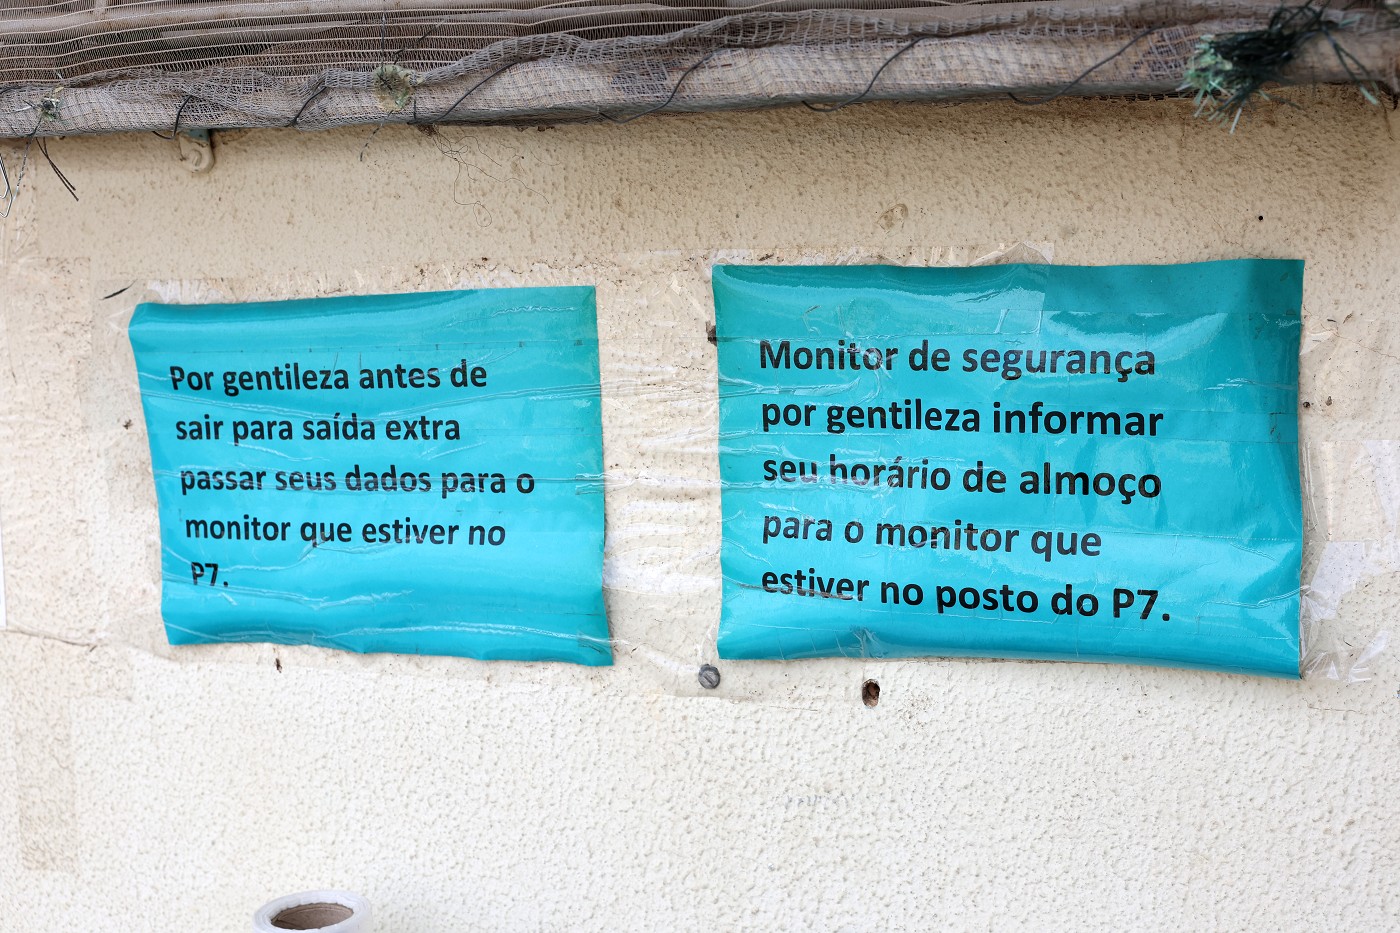 Por gentileza antes de
sair para saída extra
passar seus dados para o
monitor que estiver no
P7.
Monitor de segurança
por gentileza informar
seu horário de almoço
para o monitor que
estiver no posto do P7.